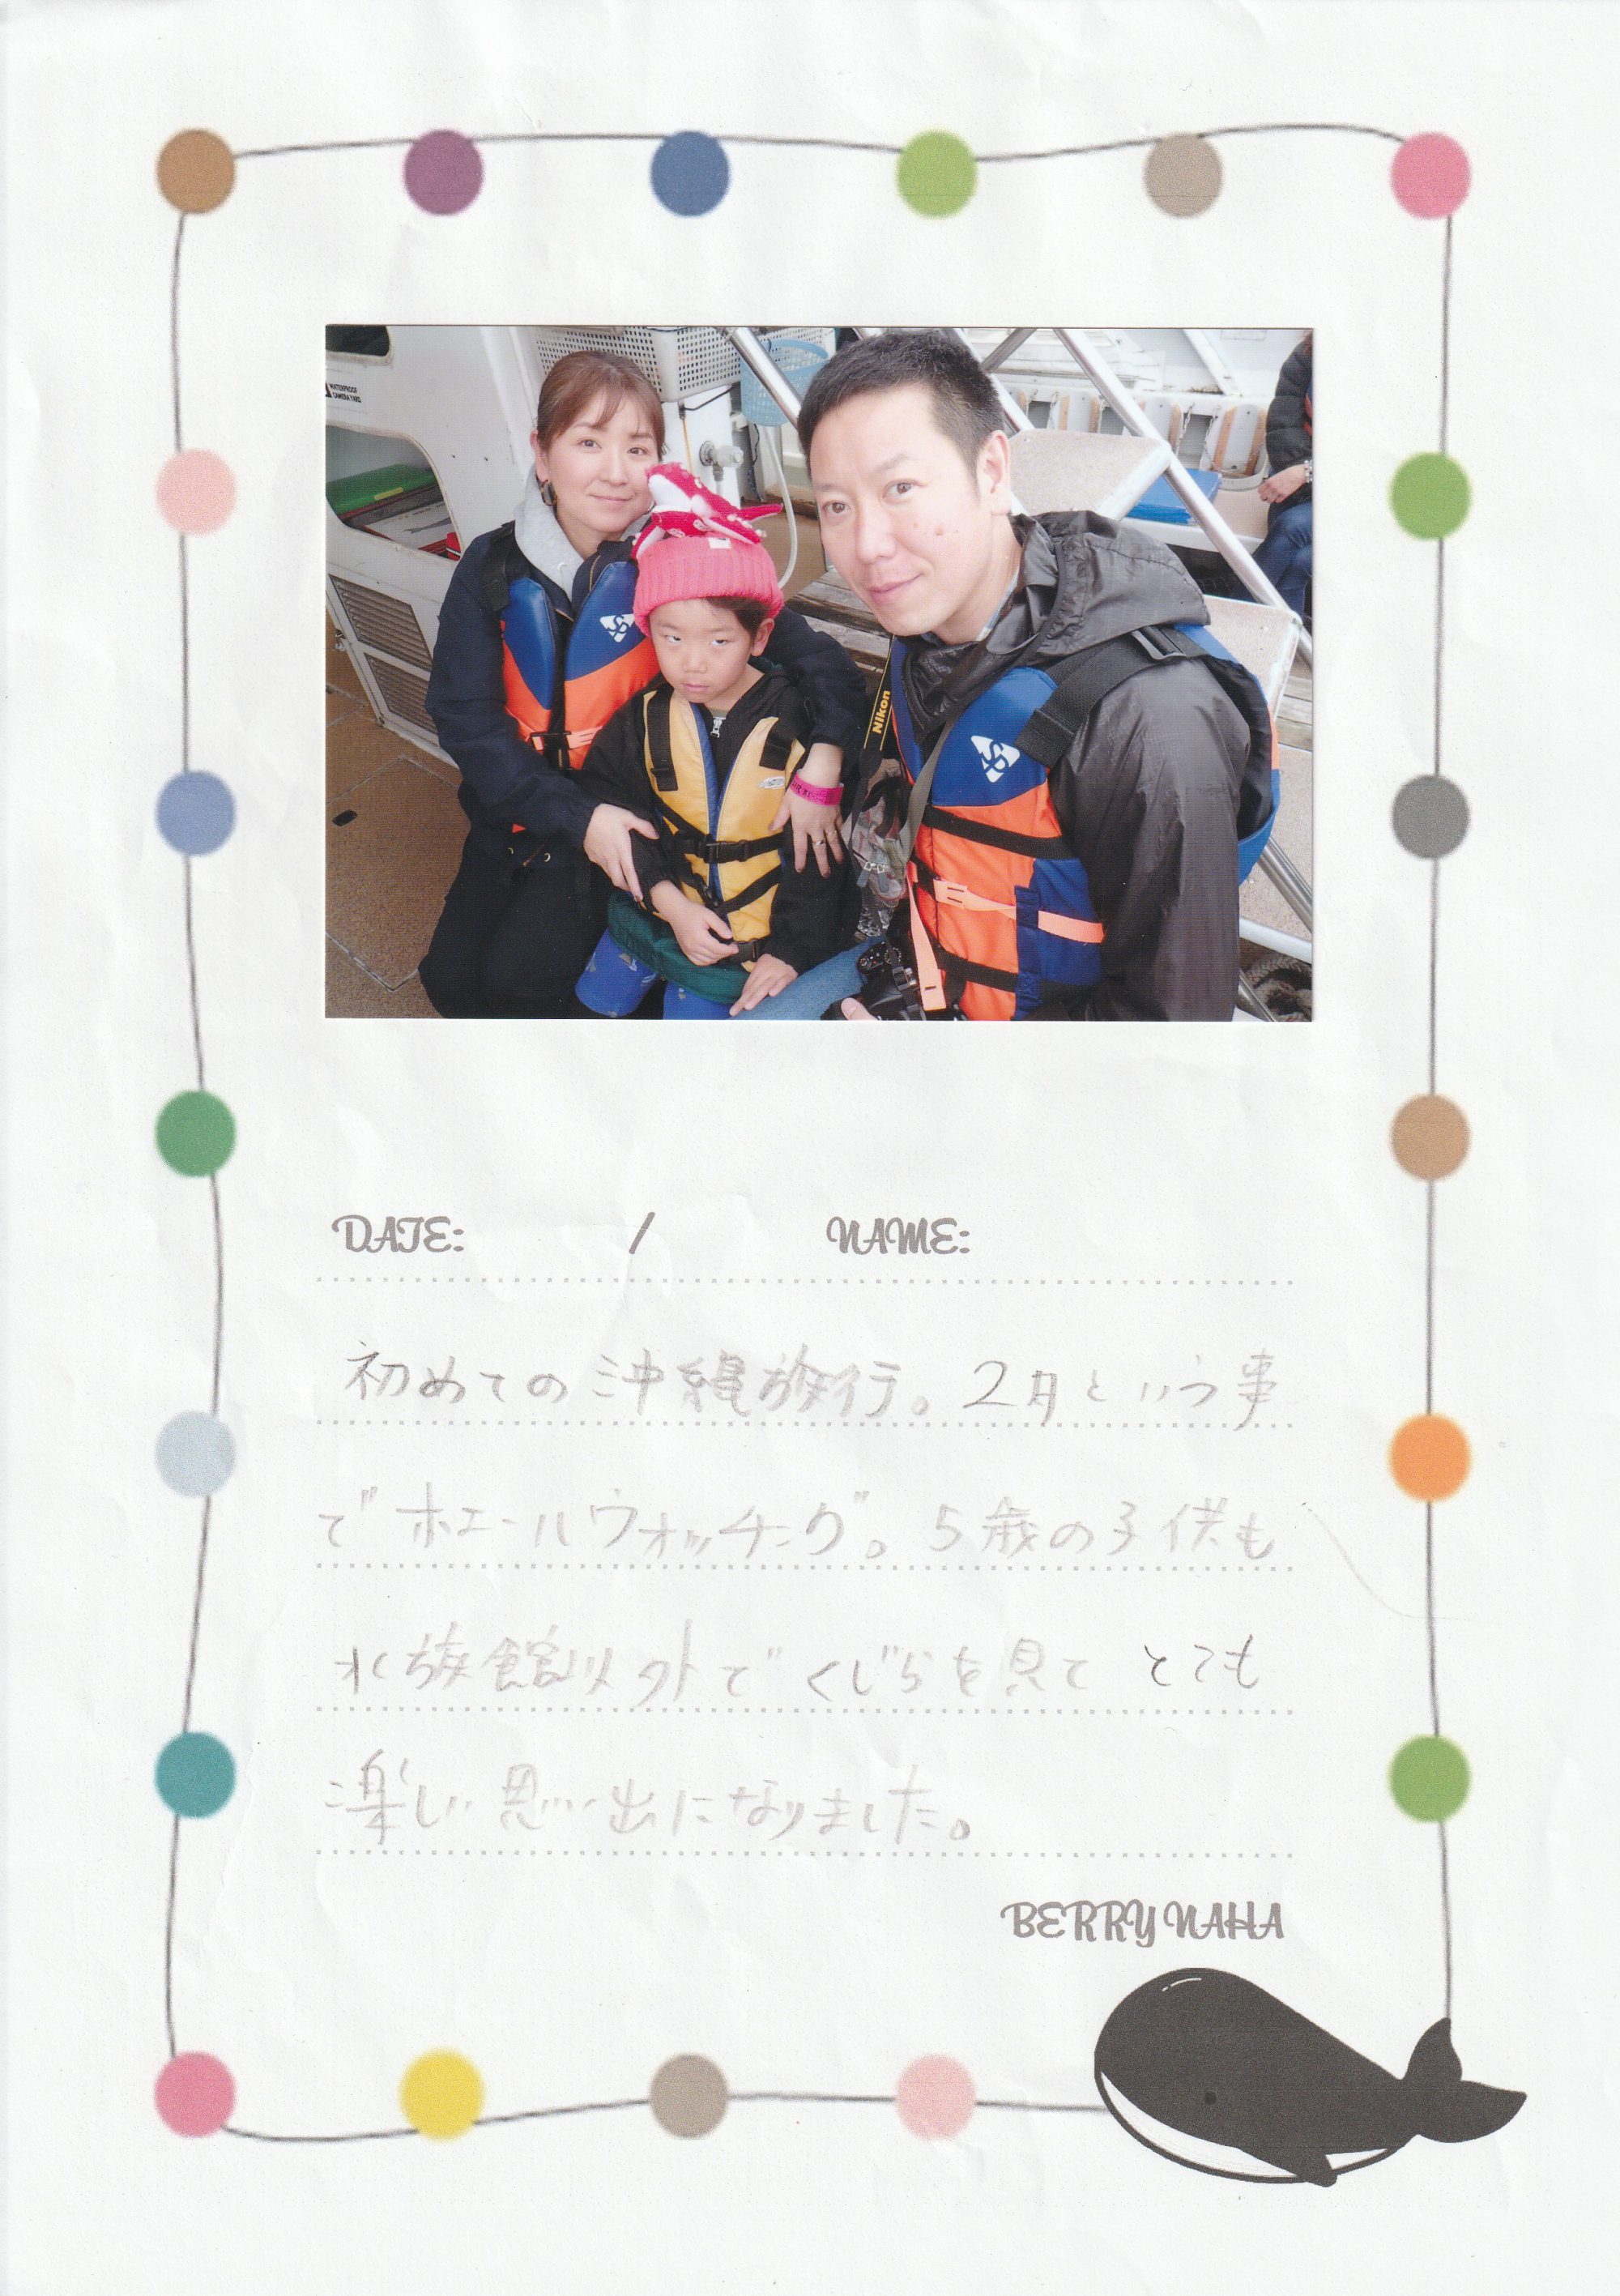 WATERPROOF
CAMERA YARD
Nikon
DATE: / NAME:
初めての沖縄旅行。2月という事
でホエールウォッチング。5歳の子供も
水族館以外でくじらを見てとても
楽しい思い出になりました。
BERRY NAHA